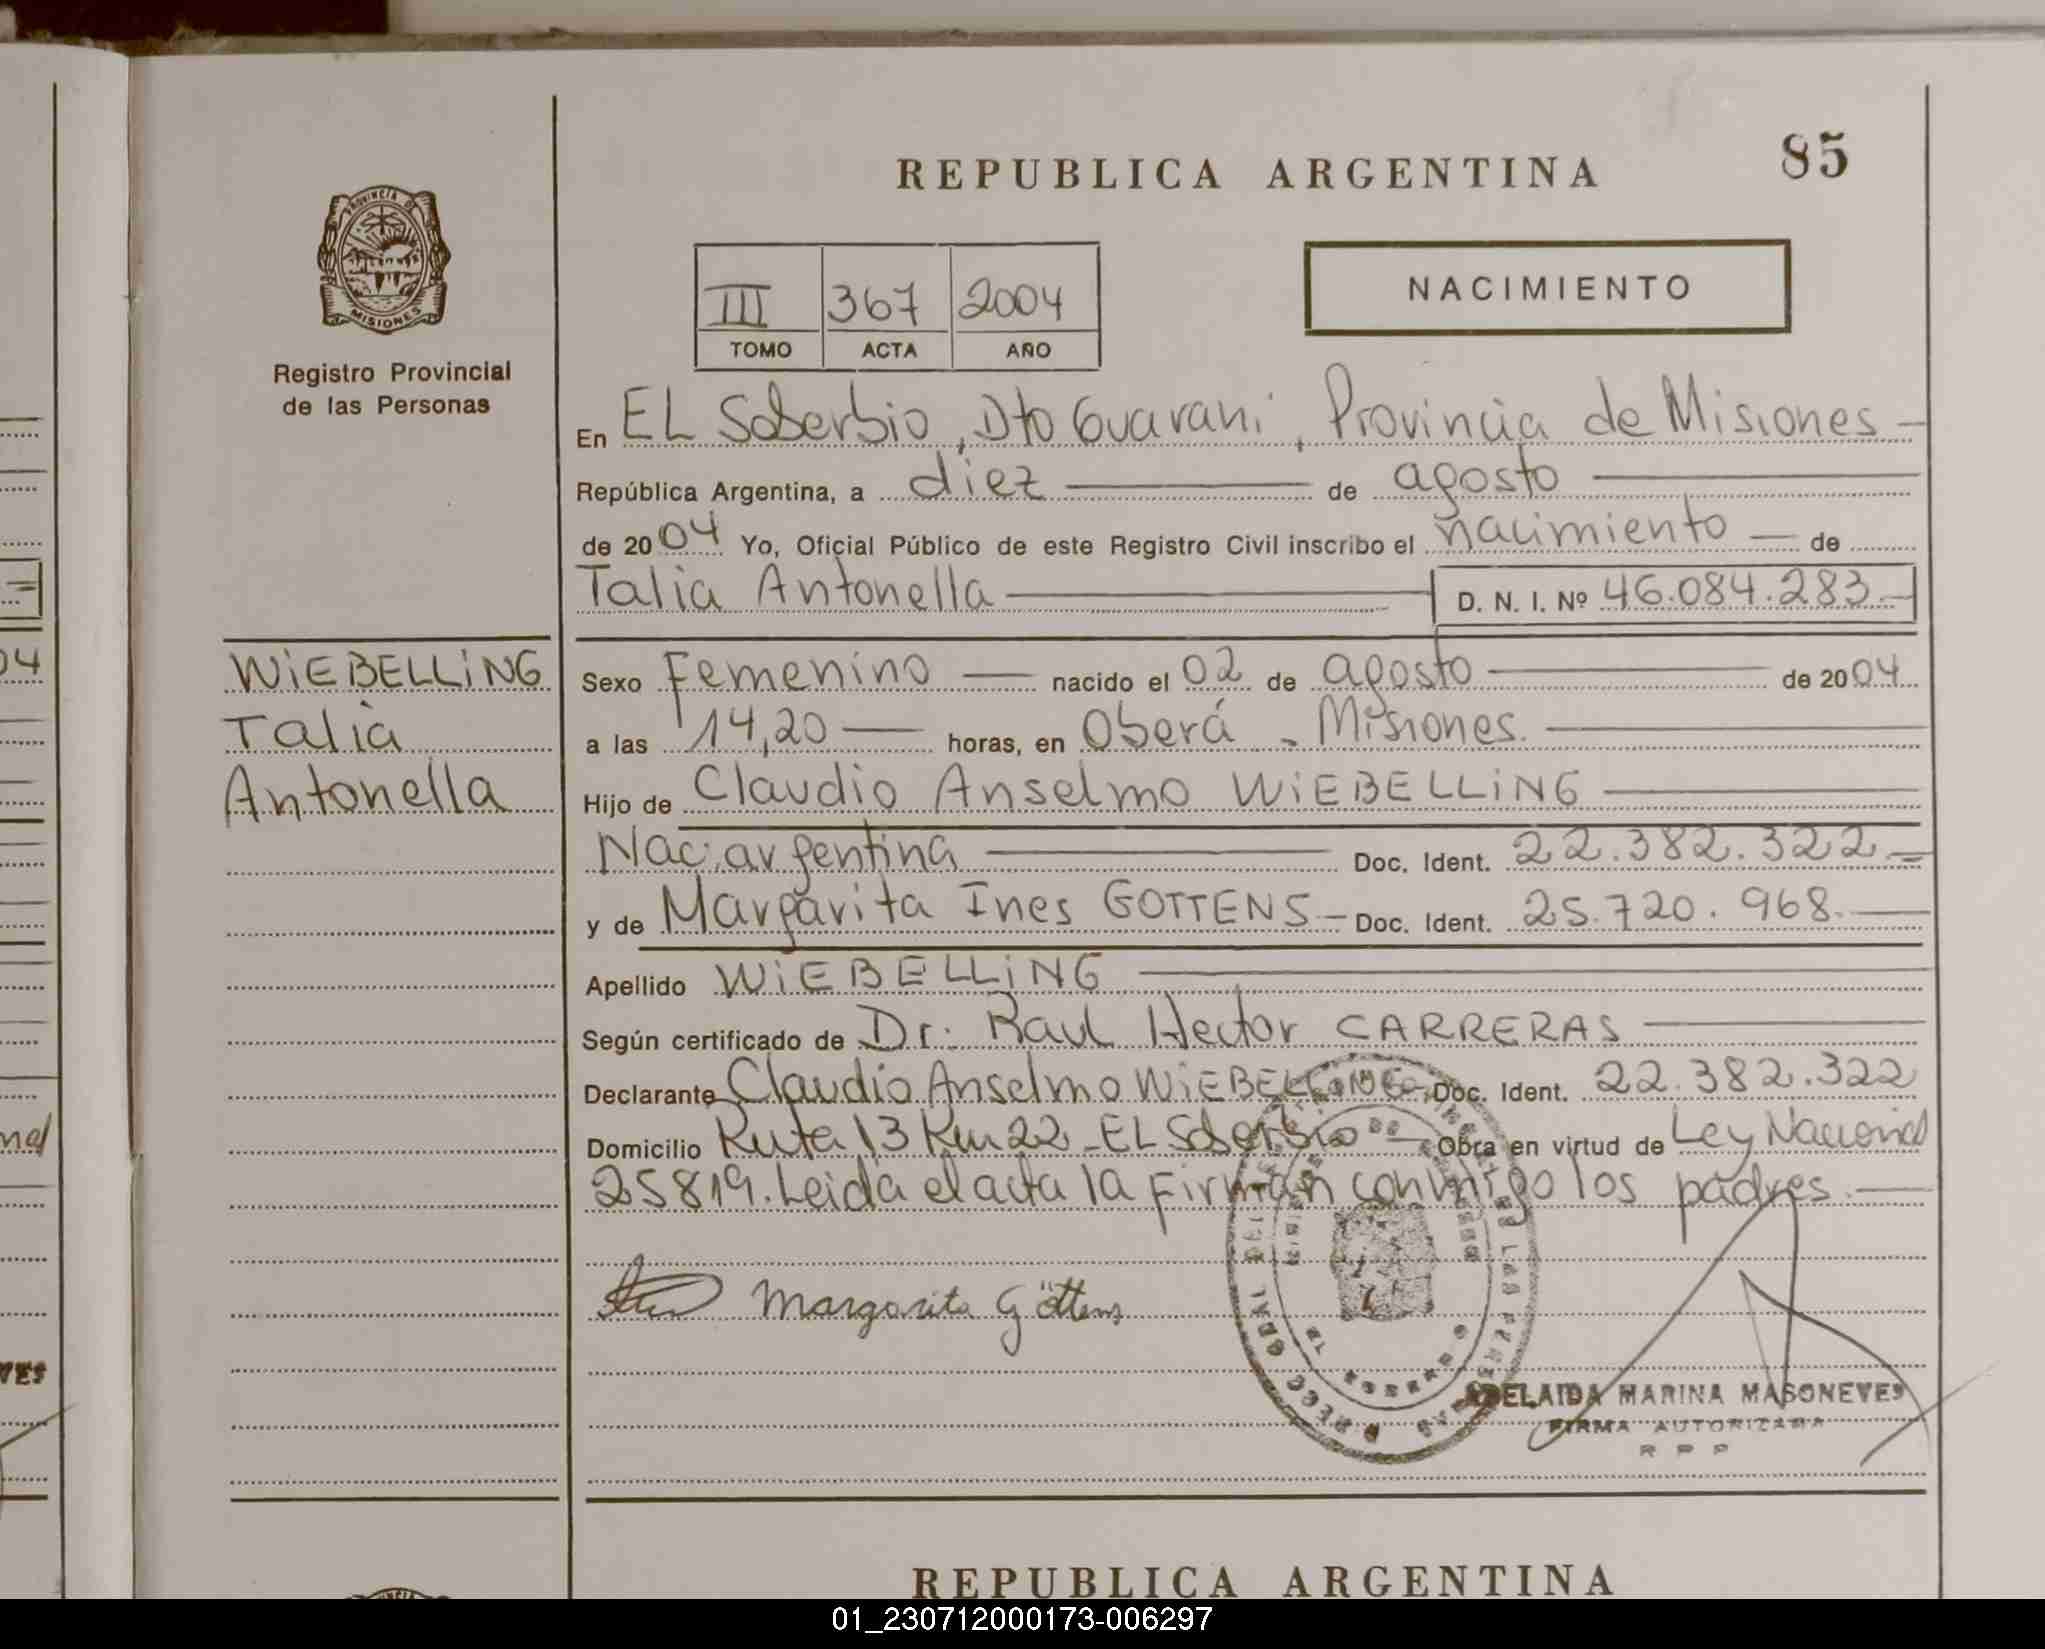 REPUBLICA ARGENTINA
85
PROVINCIA DE
MISIONES
Registro Provincial
de las Personas
III 367 2004
TOMO ACTA AÑO
NACIMIENTO
En EL Soberbio, Dto Guarani, Provincia de Misiones
República Argentina, a diez de agosto
de 2004 Yo, Oficial Público de este Registro Civil inscribo el nacimiento de
Talia Antonella D. N. I. Nº 46.084.283
WiEBELLiNG
Talia
Antonella
Sexo Femenino nacido el 02 de agosto de 2004
a las 14,20 horas, en Oberá - Misiones.
Hijo de Claudio Anselmo WiEBELLiNG
Nac. argentina Doc. Ident. 22.382.322
y de Margarita Ines GOTTENS Doc. Ident. 25.720.968.
Apellido WiEBELLiNG
Según certificado de Dr. Raul Hector CARRERAS
Declarante Claudio Anselmo WiEBELLiNG Doc. Ident. 22.382.322
Domicilio Ruta 13 Km 22 - EL Soberbio Obra en virtud de Ley Nacional
25819. Leida el acta la Firman conmigo los padres.
Margarita Göttens
ADELAIDA MARINA MASONEVES
FIRMA AUTORIZADA
R P P
04
VES
REPUBLICA ARGENTINA
01_230712000173-006297